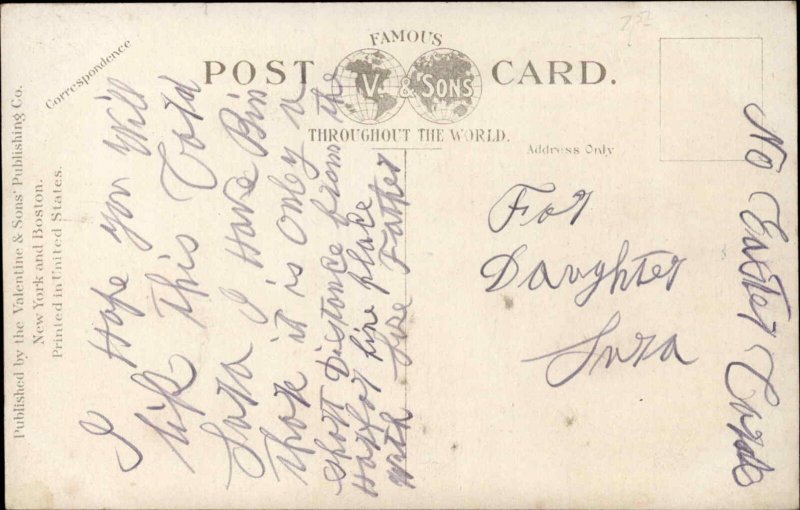 Published by the Valentine & Sons' Publishing Co.
New York and Boston.
Printed in United States.
Correspondence
FAMOUS
POST CARD.
V. & SONS
THROUGHOUT THE WORLD.
Address Only
I Hope you Will
like This Card
Lura I Have Bin
thar it is Only a
short Distance from the
fire place
with Love Father
For
Daughter
Lura
No Easter Card